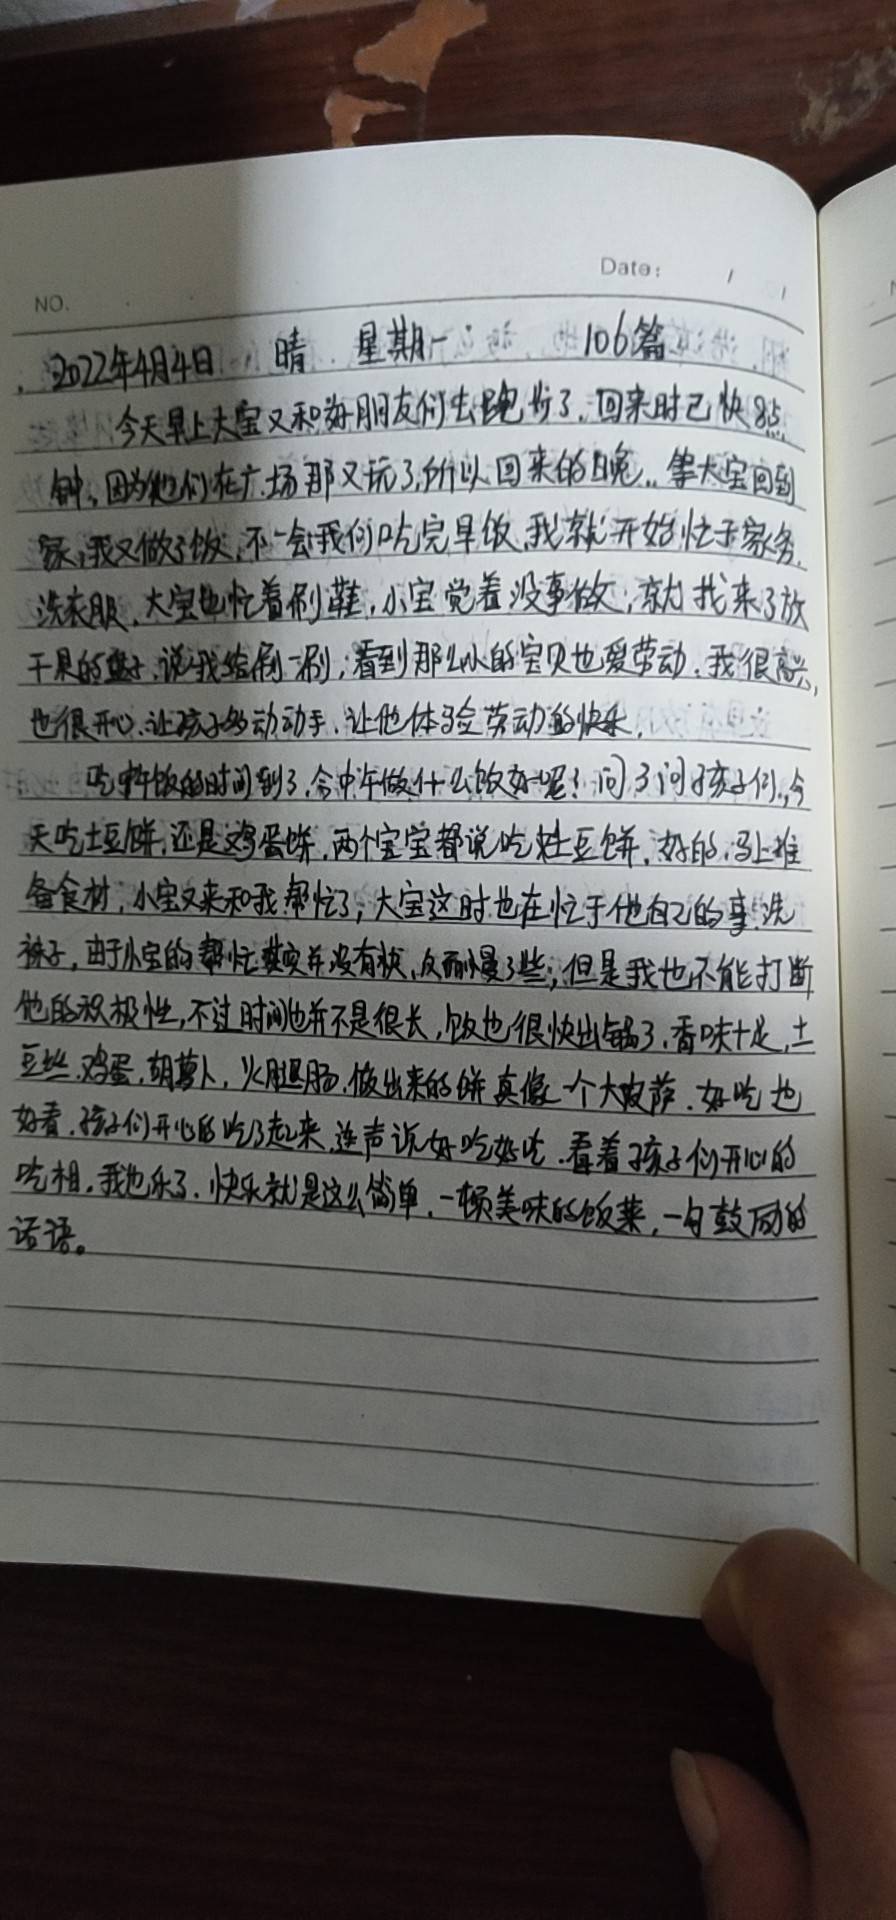 Date: / /
NO.
2022年4月4日 晴 星期一 106篇
今天早上大宝又和好朋友们去跑步了,回来时已快8点
钟,因为他们在广场那又玩了,所以回来的晚,等大宝回到
家,我又做了饭,不一会我们吃完早饭,我就开始忙于家务,
洗衣服,大宝也忙着刷鞋,小宝觉着没事做,就找来了放
干果的盘子,说我给刷一刷,看到那么小的宝贝也爱劳动,我很高兴,
也很开心,让孩子多动动手,让他体验劳动的快乐,
吃中午饭的时间到了,今中午做什么饭好呢!问了问孩子们,今
天吃土豆饼,还是鸡蛋饼,两个宝宝都说吃土豆饼,好的,马上准
备食材,小宝又来和我帮忙了,大宝这时也在忙于他自己的事,洗
袜子,由于小宝的帮忙其实并没有快,反而慢了些,但是我也不能打断
他的积极性,不过时间也并不是很长,饭也很快出锅了,香味十足,土
豆丝,鸡蛋,胡萝卜,火腿肠,做出来的饼真像一个大披萨,好吃也
好看,孩子们开心的吃了起来,连声说好吃好吃,看着孩子们开心的
吃相,我也乐了,快乐就是这么简单,一顿美味的饭菜,一句鼓励的
话语。